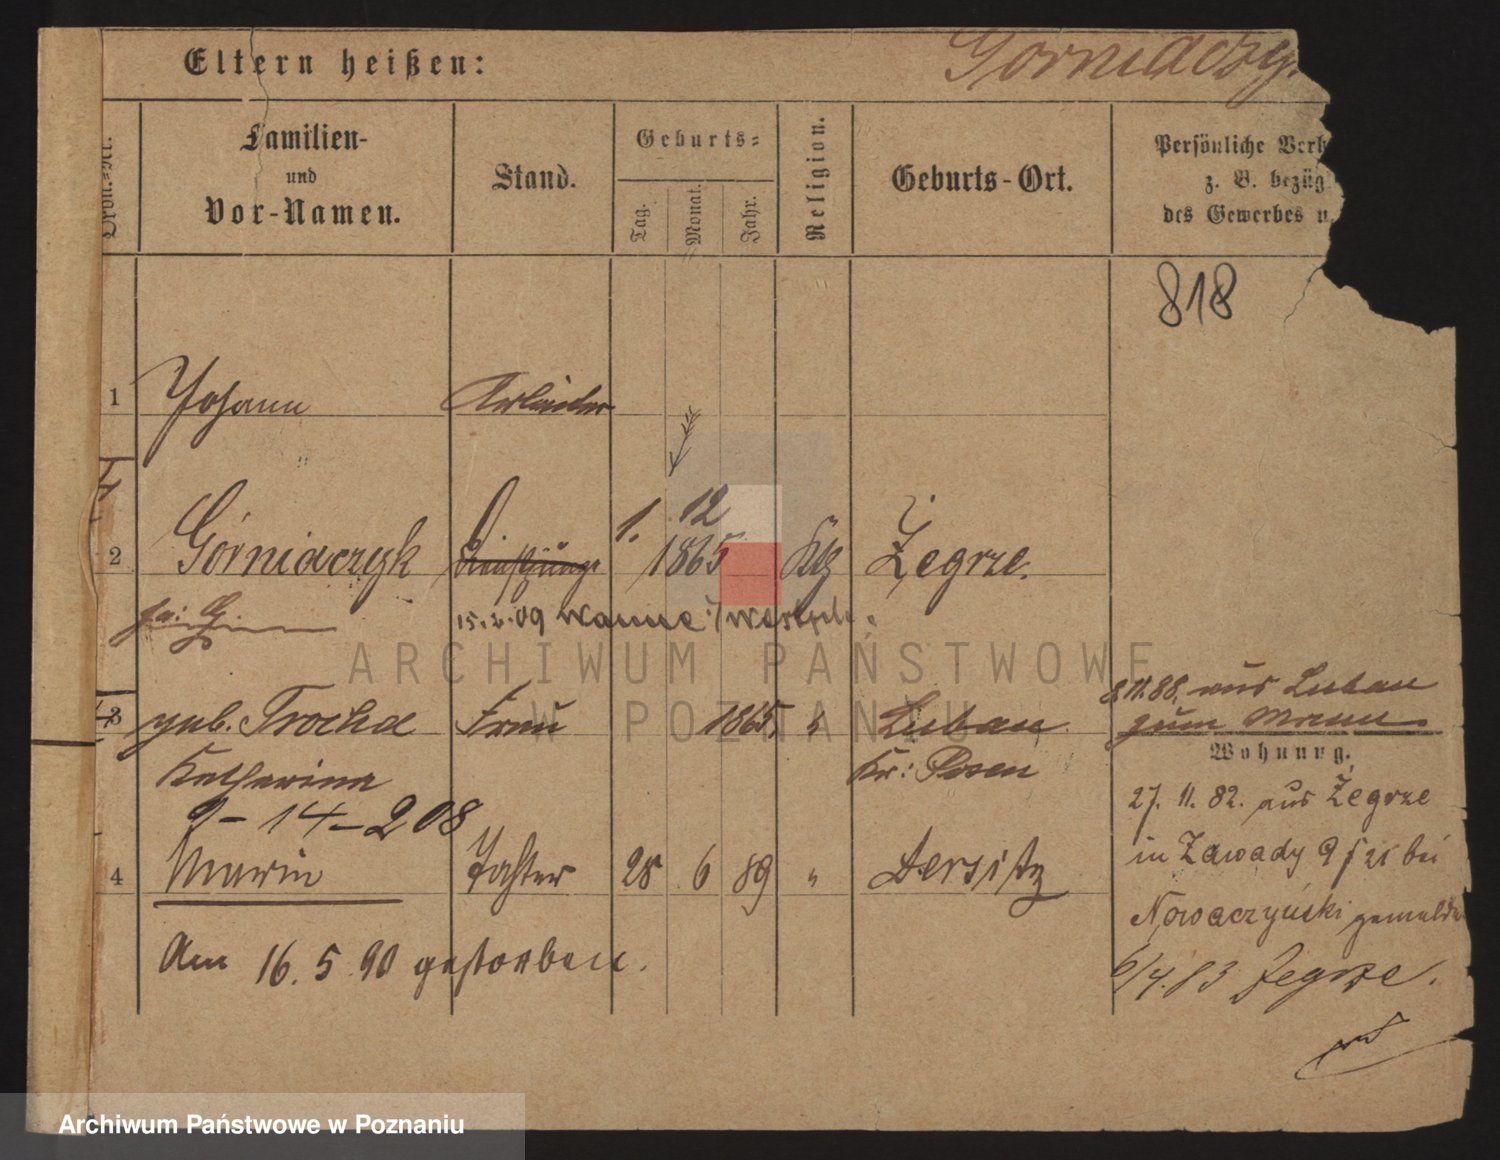 Eltern heißen:
Górniaczy
Ordn.-Nr.
Familien-
und
Vor-Namen.
Stand.
Geburts-
Tag.
Monat.
Jahr.
Religion.
Geburts-Ort.
Persönliche Verh
z. B. bezüg
des Gewerbes u.
818
1 Johann Arbeiter
2 Górniaczyk 1. 12 1865 Kk Żegrze.
15. 2. 09 Wanne i/Westph.
3 geb. Trocha Frau 1865 " Luban
Katharina Kr: Posen
8.11.88. aus Luban
zum Mann.
Wohnung.
9-14-208
4 Marie Tochter 28 6 89 " Dersitz
Am 16. 5. 90 gestorben.
27. 11. 82. aus Żegrze
in Zawady 9 bei
Nowaczyński gemeldet
6/4.83 Zegrze.
ARCHIWUM PAŃSTWOWE
W POZNANIU
Archiwum Państwowe w Poznaniu